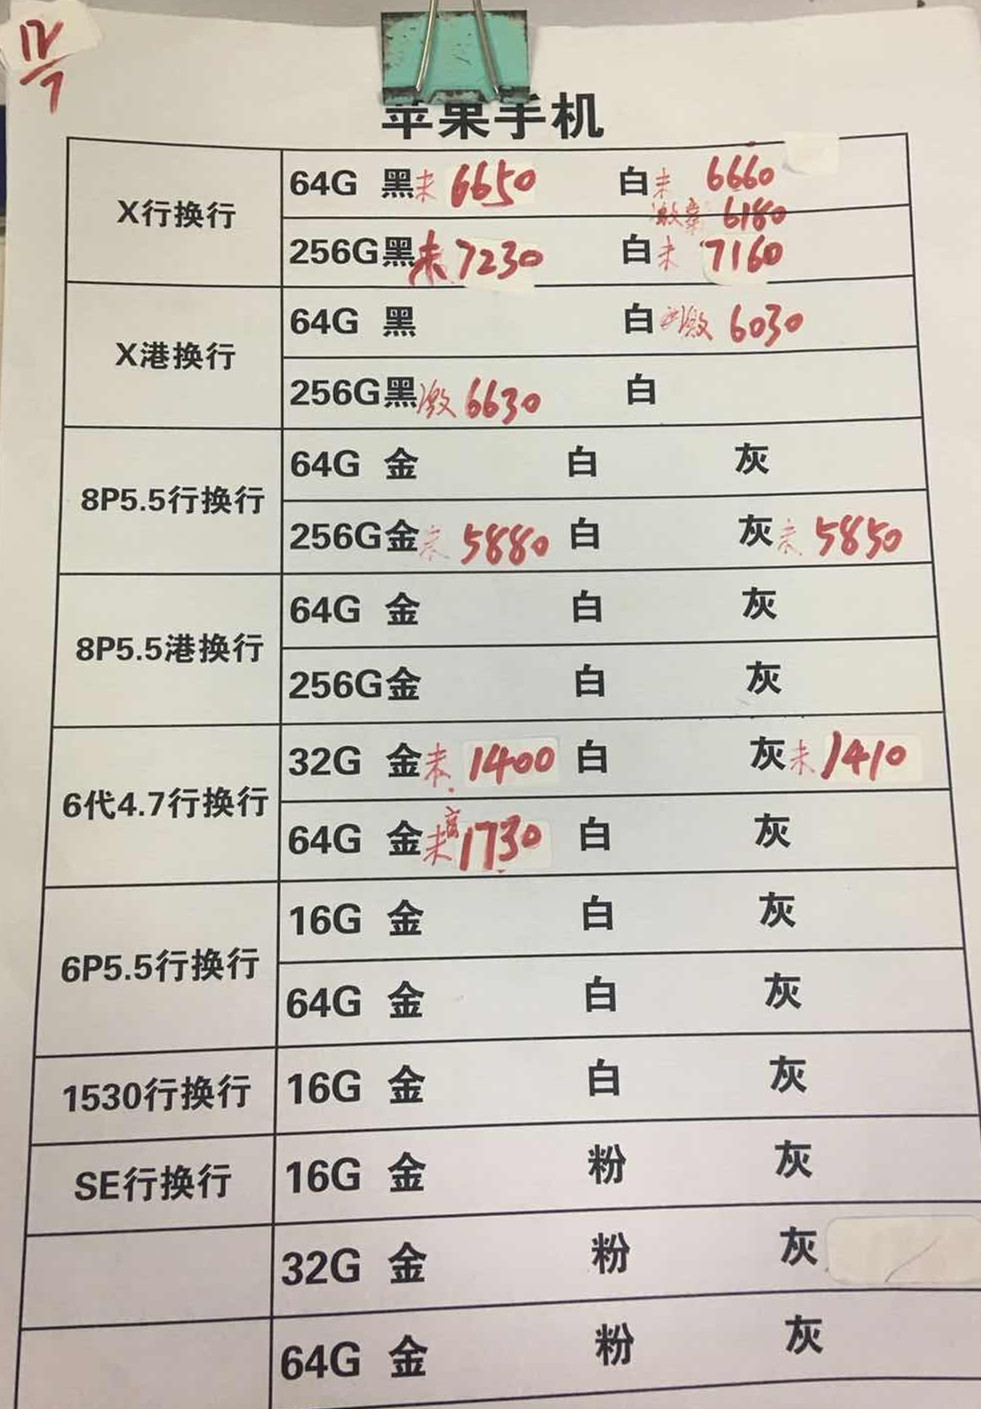 12/7
苹果手机
X行换行
64G 黑未 6650 白未 6660
激 6180
256G黑未 7230 白未 7160
X港换行
64G 黑 白激 6030
256G黑激 6630 白
8P5.5行换行
64G 金 白 灰
256G金未 5880 白 灰未 5850
8P5.5港换行
64G 金 白 灰
256G金 白 灰
6代4.7行换行
32G 金未 1400 白 灰未 1410
64G 金未 1730 白 灰
6P5.5行换行
16G 金 白 灰
64G 金 白 灰
1530行换行
16G 金 白 灰
SE行换行
16G 金 粉 灰
32G 金 粉 灰
64G 金 粉 灰